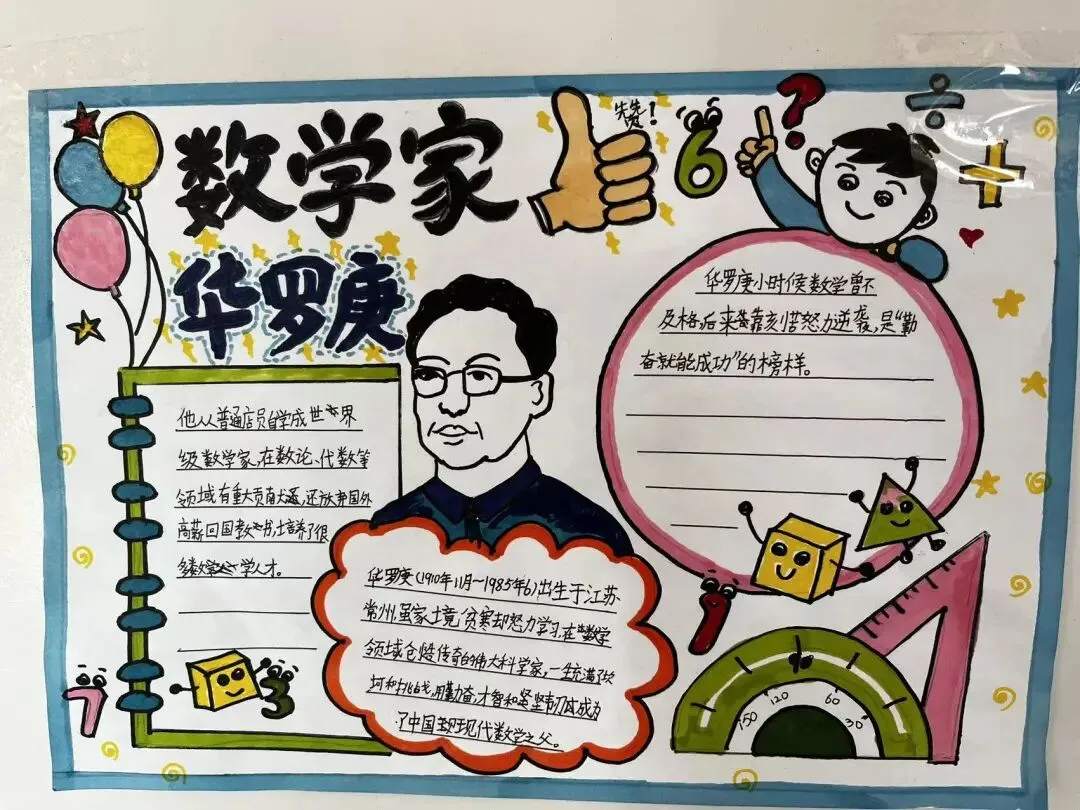 数学家
赞！
6
?
÷
+
华罗庚
华罗庚小时候数学曾不
及格，后来靠刻苦努力逆袭，是“勤
奋就能成功”的榜样。
他从普通店员自学成世界
级数学家，在数论、代数等
领域有重大贡献，还放弃国外
高薪回国教书，培养了很
多数学人才。
华罗庚（1910年11月～1985年6）出生于江苏
常州，虽家境贫寒却努力学习，在数学
领域创造传奇的伟大科学家，一生充满了坎
坷和挑战，用勤奋，才智和坚韧成为
了中国现代数学之父。
1
7
3
150
120
60
30